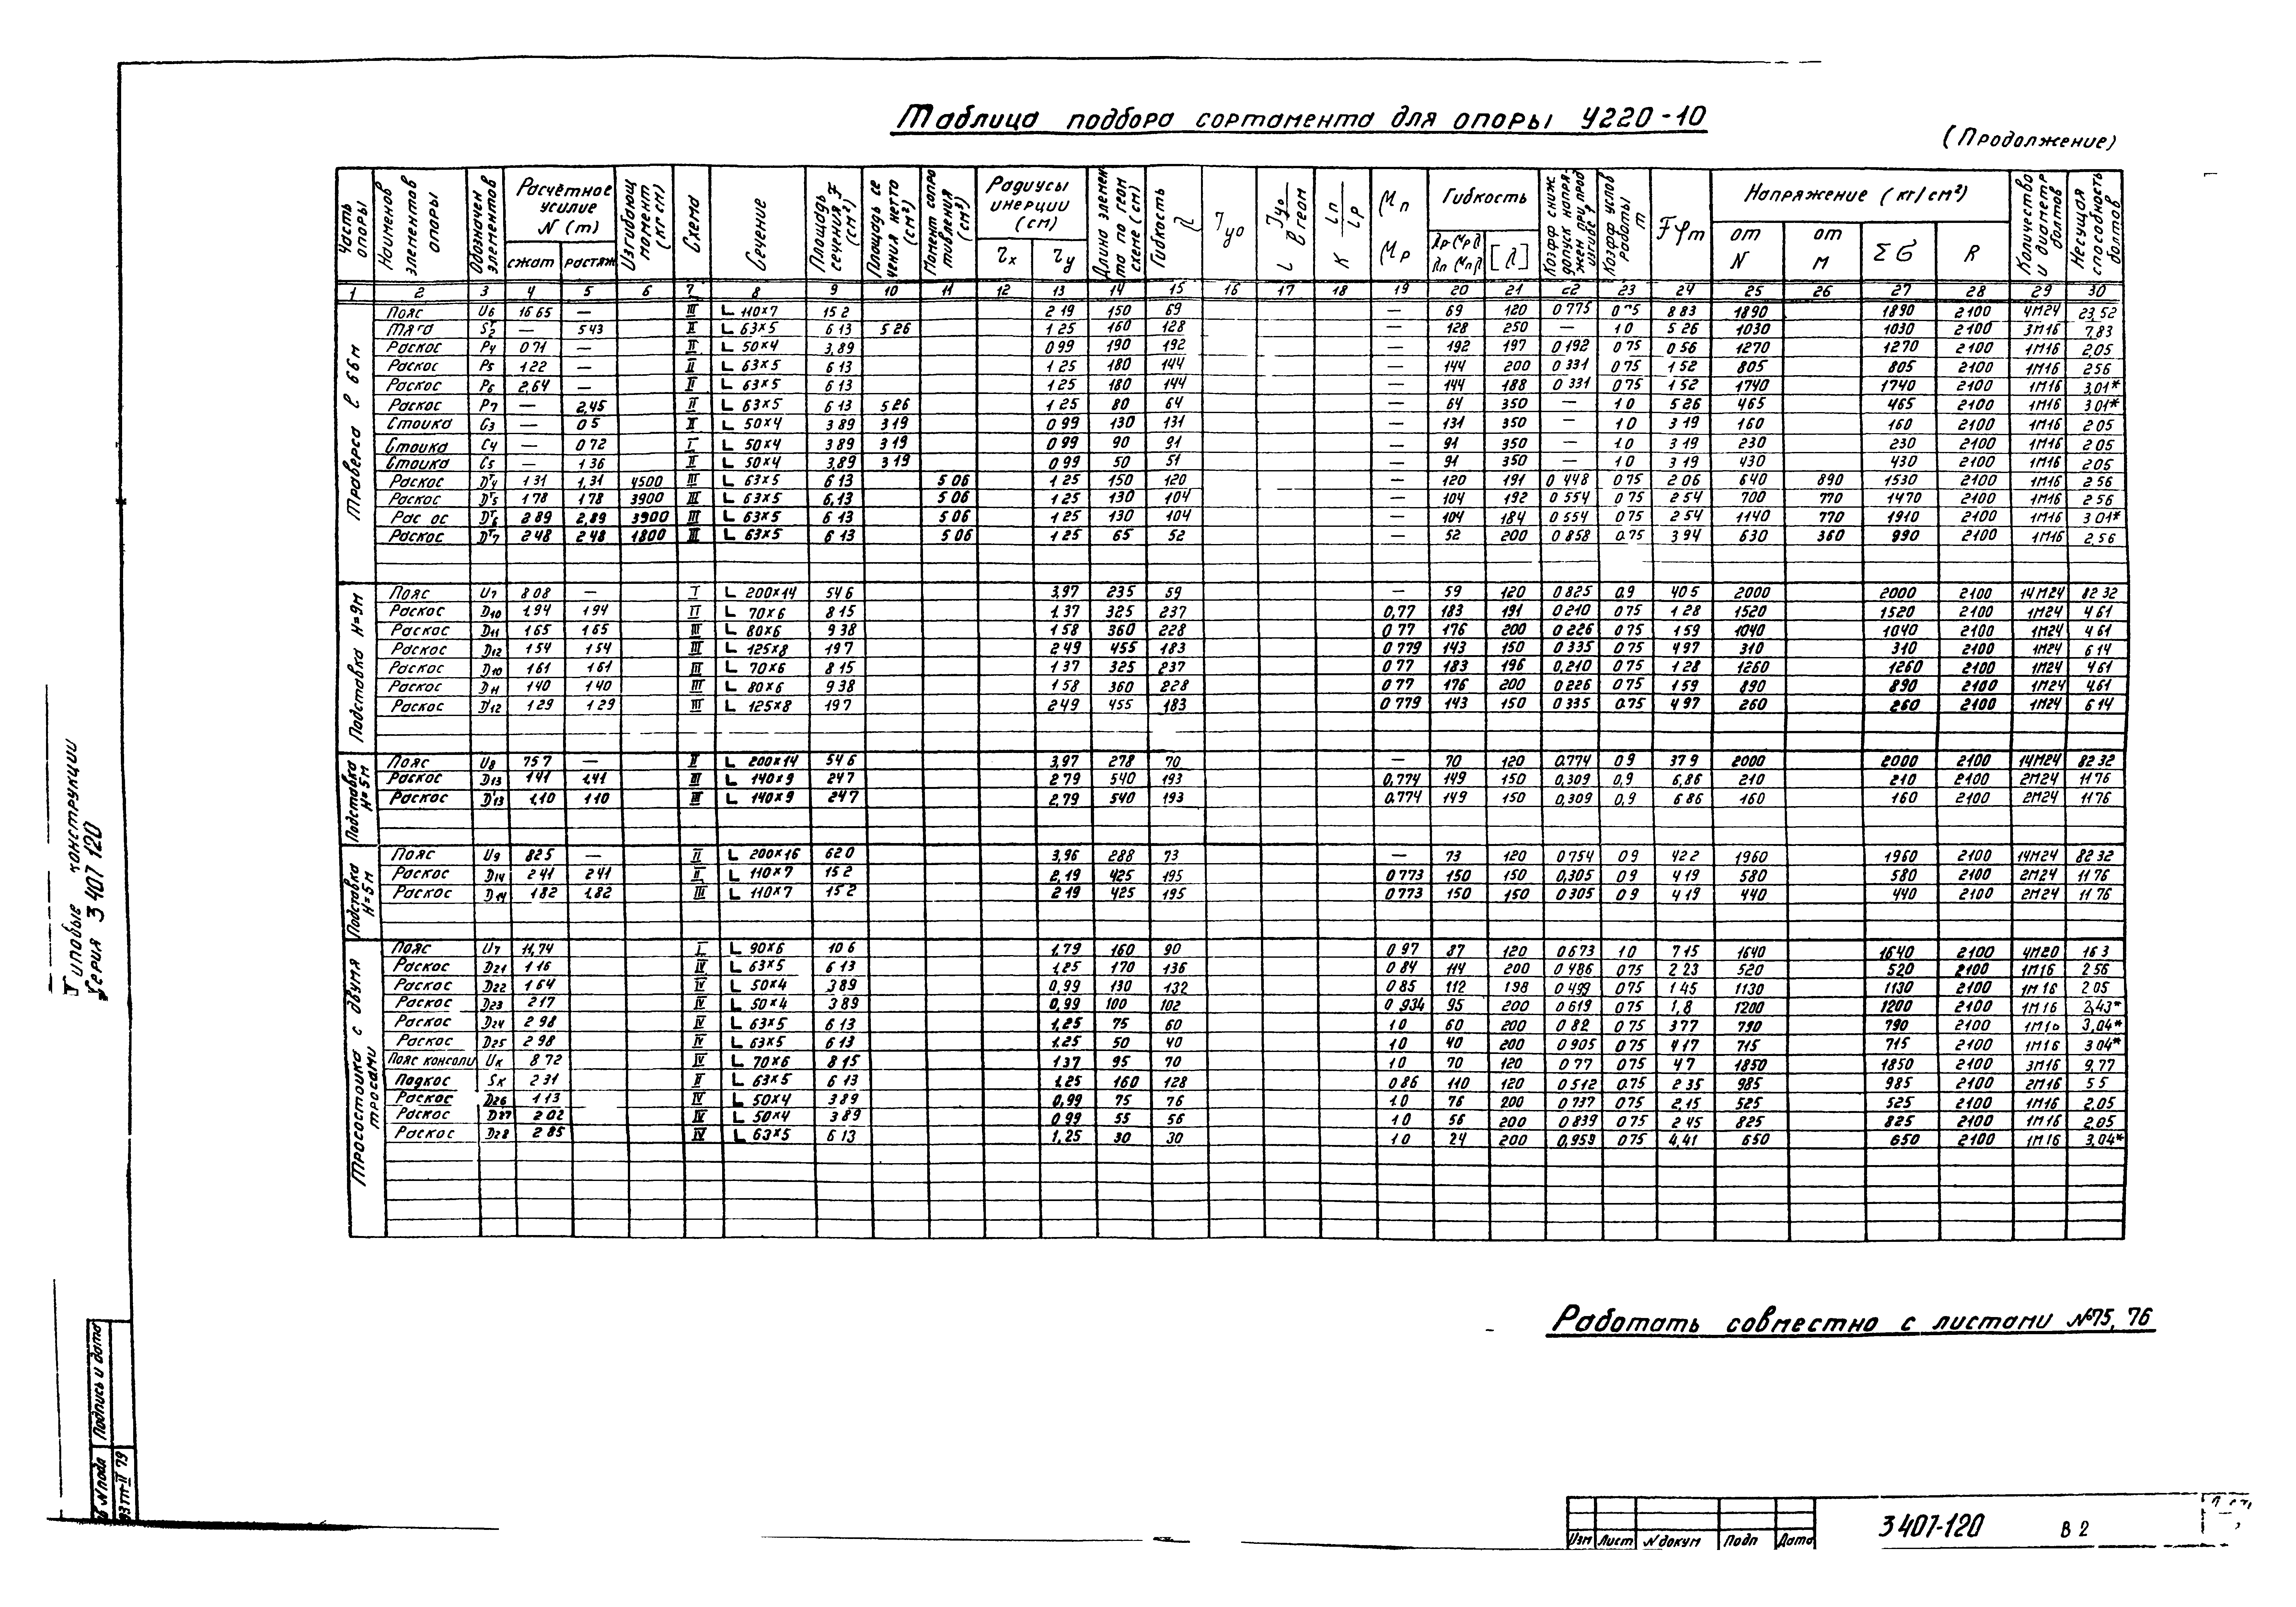 Таблица подбора сортамента для опоры У220-10
(Продолжение)
Часть опоры | Наименов элементов опоры | Обозначен элементов | Расчётное усилие N (т) сжат растяж | Изгибающ момент (кг см) | Схема | Сечение | Площадь сечения F (см²) | Площадь сечения нетто (см²) | Момент сопротивления (см³) | Радиусы инерции (см) rx ry | Длина элемента по геом схеме (см) | Гибкость λ | Гибкость [λ] | Коэфф сниж допуск напряжен при прод изгибе φ | Коэфф услов работы m | Fφm | Напряжение (кг/см²) от N от M Σσ R | Количество и диаметр болтов | Несущая способность болтов
1 2 3 4 5 6 7 8 9 10 11 12 13 14 15 16 17 18 19 20 21 22 23 24 25 26 27 28 29 30
Траверса ℓ 66м
Пояс U6 16 65 — III L 110×7 15 2 2 19 150 69 — 69 120 0 775 8 83 1890 1890 2100 4М24 23,52
Тяга — 5 43 II L 63×5 6 13 5 26 1 25 160 128 — 128 250 — 1 0 5 26 1030 1030 2100 3М16 7,83
Раскос P4 0 71 — II L 50×4 3,89 0 99 190 192 — 192 197 0 192 0 75 0 56 1270 1270 2100 1М16 2,05
Раскос P5 1 22 — II L 63×5 6 13 1 25 180 144 — 144 200 0 331 0 75 1 52 805 805 2100 1М16 2 56
Раскос P6 2,64 — II L 63×5 6 13 1 25 180 144 — 144 188 0 331 0 75 1 52 1740 1740 2100 1М16 3,01*
Раскос P7 — 2,45 II L 63×5 6 13 5 26 1 25 80 64 — 64 350 — 1 0 5 26 465 465 2100 1М16 3 01*
Стойка C3 — 0 5 II L 50×4 3 89 3 19 0 99 130 131 — 131 350 — 1 0 3 19 160 160 2100 1М16 2 05
Стойка C4 — 0 72 I L 50×4 3 89 3 19 0 99 90 91 — 91 350 — 1 0 3 19 230 230 2100 1М16 2 05
Стойка C5 — 1 36 II L 50×4 3,89 3 19 0 99 50 51 — 91 350 — 1 0 3 19 430 430 2100 1М16 2 05
Раскос Dт4 1 31 1,31 4500 III L 63×5 6 13 5 06 1 25 150 120 — 120 191 0 448 0 75 2 06 640 890 1530 2100 1М16 2 56
Раскос Dт5 1 78 1 78 3900 III L 63×5 6,13 5 06 1 25 130 104 — 104 192 0 554 0 75 2 54 700 770 1470 2100 1М16 2 56
Рас ос Dт6 2 89 2,89 3900 III L 63×5 6 13 5 06 1 25 130 104 — 104 184 0 554 0 75 2 54 1140 770 1910 2100 1М16 3 01*
Раскос Dт7 2 48 2 48 1800 III L 63×5 6 13 5 06 1 25 65 52 — 52 200 0 858 0.75 3 94 630 360 990 2100 1М16 2,56
Подставка Н=9м
Пояс U7 8 08 — I L 200×14 54 6 3,97 235 59 — 59 120 0 825 0.9 40 5 2000 2000 2100 14М24 82 32
Раскос D10 1,94 1 94 II L 70×6 8 15 1.37 325 237 0,77 183 191 0 210 0 75 1 28 1520 1520 2100 1М24 4 61
Раскос D11 1 65 1 65 III L 80×6 9 38 1 58 360 228 0 77 176 200 0 226 0 75 1 59 1040 1040 2100 1М24 4 61
Раскос D12 1 54 1 54 III L 125×8 19 7 2 49 455 183 0 779 143 150 0 335 0 75 4 97 310 310 2100 1М24 6 14
Раскос D10 1,61 1,61 III L 70×6 8 15 1 37 325 237 0 77 183 196 0,210 0 75 1 28 1260 1260 2100 1М24 4 61
Раскос D11 1 40 1 40 III L 80×6 9 38 1 58 360 228 0 77 176 200 0 226 0 75 1 59 890 890 2100 1М24 4,61
Раскос D'12 1 29 1 29 III L 125×8 19 7 2 49 455 183 0 779 143 150 0 335 0.75 4 97 260 260 2100 1М24 6 14
Подставка Н=5м
Пояс U8 75 7 — II L 200×14 54 6 3,97 278 70 — 70 120 0.774 0 9 37 9 2000 2000 2100 14М24 82 32
Раскос D13 1,41 1,41 III L 140×9 24 7 2 79 540 193 0,774 149 150 0,309 0,9 6,86 210 210 2100 2М24 11 76
Раскос D'13 1,10 1 10 III L 140×9 24 7 2,79 540 193 0.774 149 150 0,309 0,9 6 86 160 160 2100 2М24 11 76
Подставка Н=5м
Пояс U9 82 5 — II L 200×16 62 0 3,96 288 73 — 73 120 0 754 0 9 42 2 1960 1960 2100 14М24 82 32
Раскос D14 2 41 2 41 II L 110×7 15 2 2,19 425 195 0 773 150 150 0,305 0 9 4 19 580 580 2100 2М24 11 76
Раскос D'14 1 82 1,82 III L 110×7 15 2 2 19 425 195 0 773 150 150 0 305 0 9 4 19 440 440 2100 2М24 11 76
Тросостойка с двумя тросами
Пояс U7 11,74 I L 90×6 10 6 1.79 160 90 0 97 87 120 0 673 1 0 7 15 1640 1640 2100 4М20 16 3
Раскос D21 1 16 IV L 63×5 6 13 1,25 170 136 0 84 114 200 0 486 0 75 2 23 520 520 2100 1М16 2 56
Раскос D22 1 64 IV L 50×4 3 89 0,99 130 132 0 85 112 198 0 499 0 75 1 45 1130 1130 2100 1М 16 2 05
Раскос D23 2 17 IV L 50×4 3 89 0,99 100 102 0 934 95 200 0 619 0 75 1,8 1200 1200 2100 1М 16 2,43*
Раскос D24 2 98 IV L 63×5 6 13 1,25 75 60 1 0 60 200 0 82 0 75 3 77 790 790 2100 1М16 3,04*
Раскос D25 2 98 IV L 63×5 6 13 1.25 50 40 1 0 40 200 0 905 0 75 4 17 715 715 2100 1М16 3 04*
Пояс консоли Uк 8 72 IV L 70×6 8 15 1 37 95 70 1 0 70 120 0 77 0 75 4 7 1850 1850 2100 3М16 9,77
Подкос Sк 2 31 II L 63×5 6 13 1,25 160 128 0 86 110 120 0 512 0.75 2 35 985 985 2100 2М16 5 5
Раскос D26 1 13 IV L 50×4 3 89 0,99 75 76 1.0 76 200 0 737 0 75 2,15 525 525 2100 1М16 2,05
Раскос D27 2 02 IV L 50×4 3 89 0 99 55 56 1 0 56 200 0 839 0 75 2 45 825 825 2100 1М16 2,05
Раскос D28 2 85 IV L 63×5 6 13 1,25 30 30 1 0 24 200 0,959 0 75 4,41 650 650 2100 1М16 3,04*
Работать совместно с листами №75, 76
Типовые конструкции
Серия 3 407 120
Подпись и дата
N подл
Изм Лист N докум Подп Дата
3 407-120 В 2